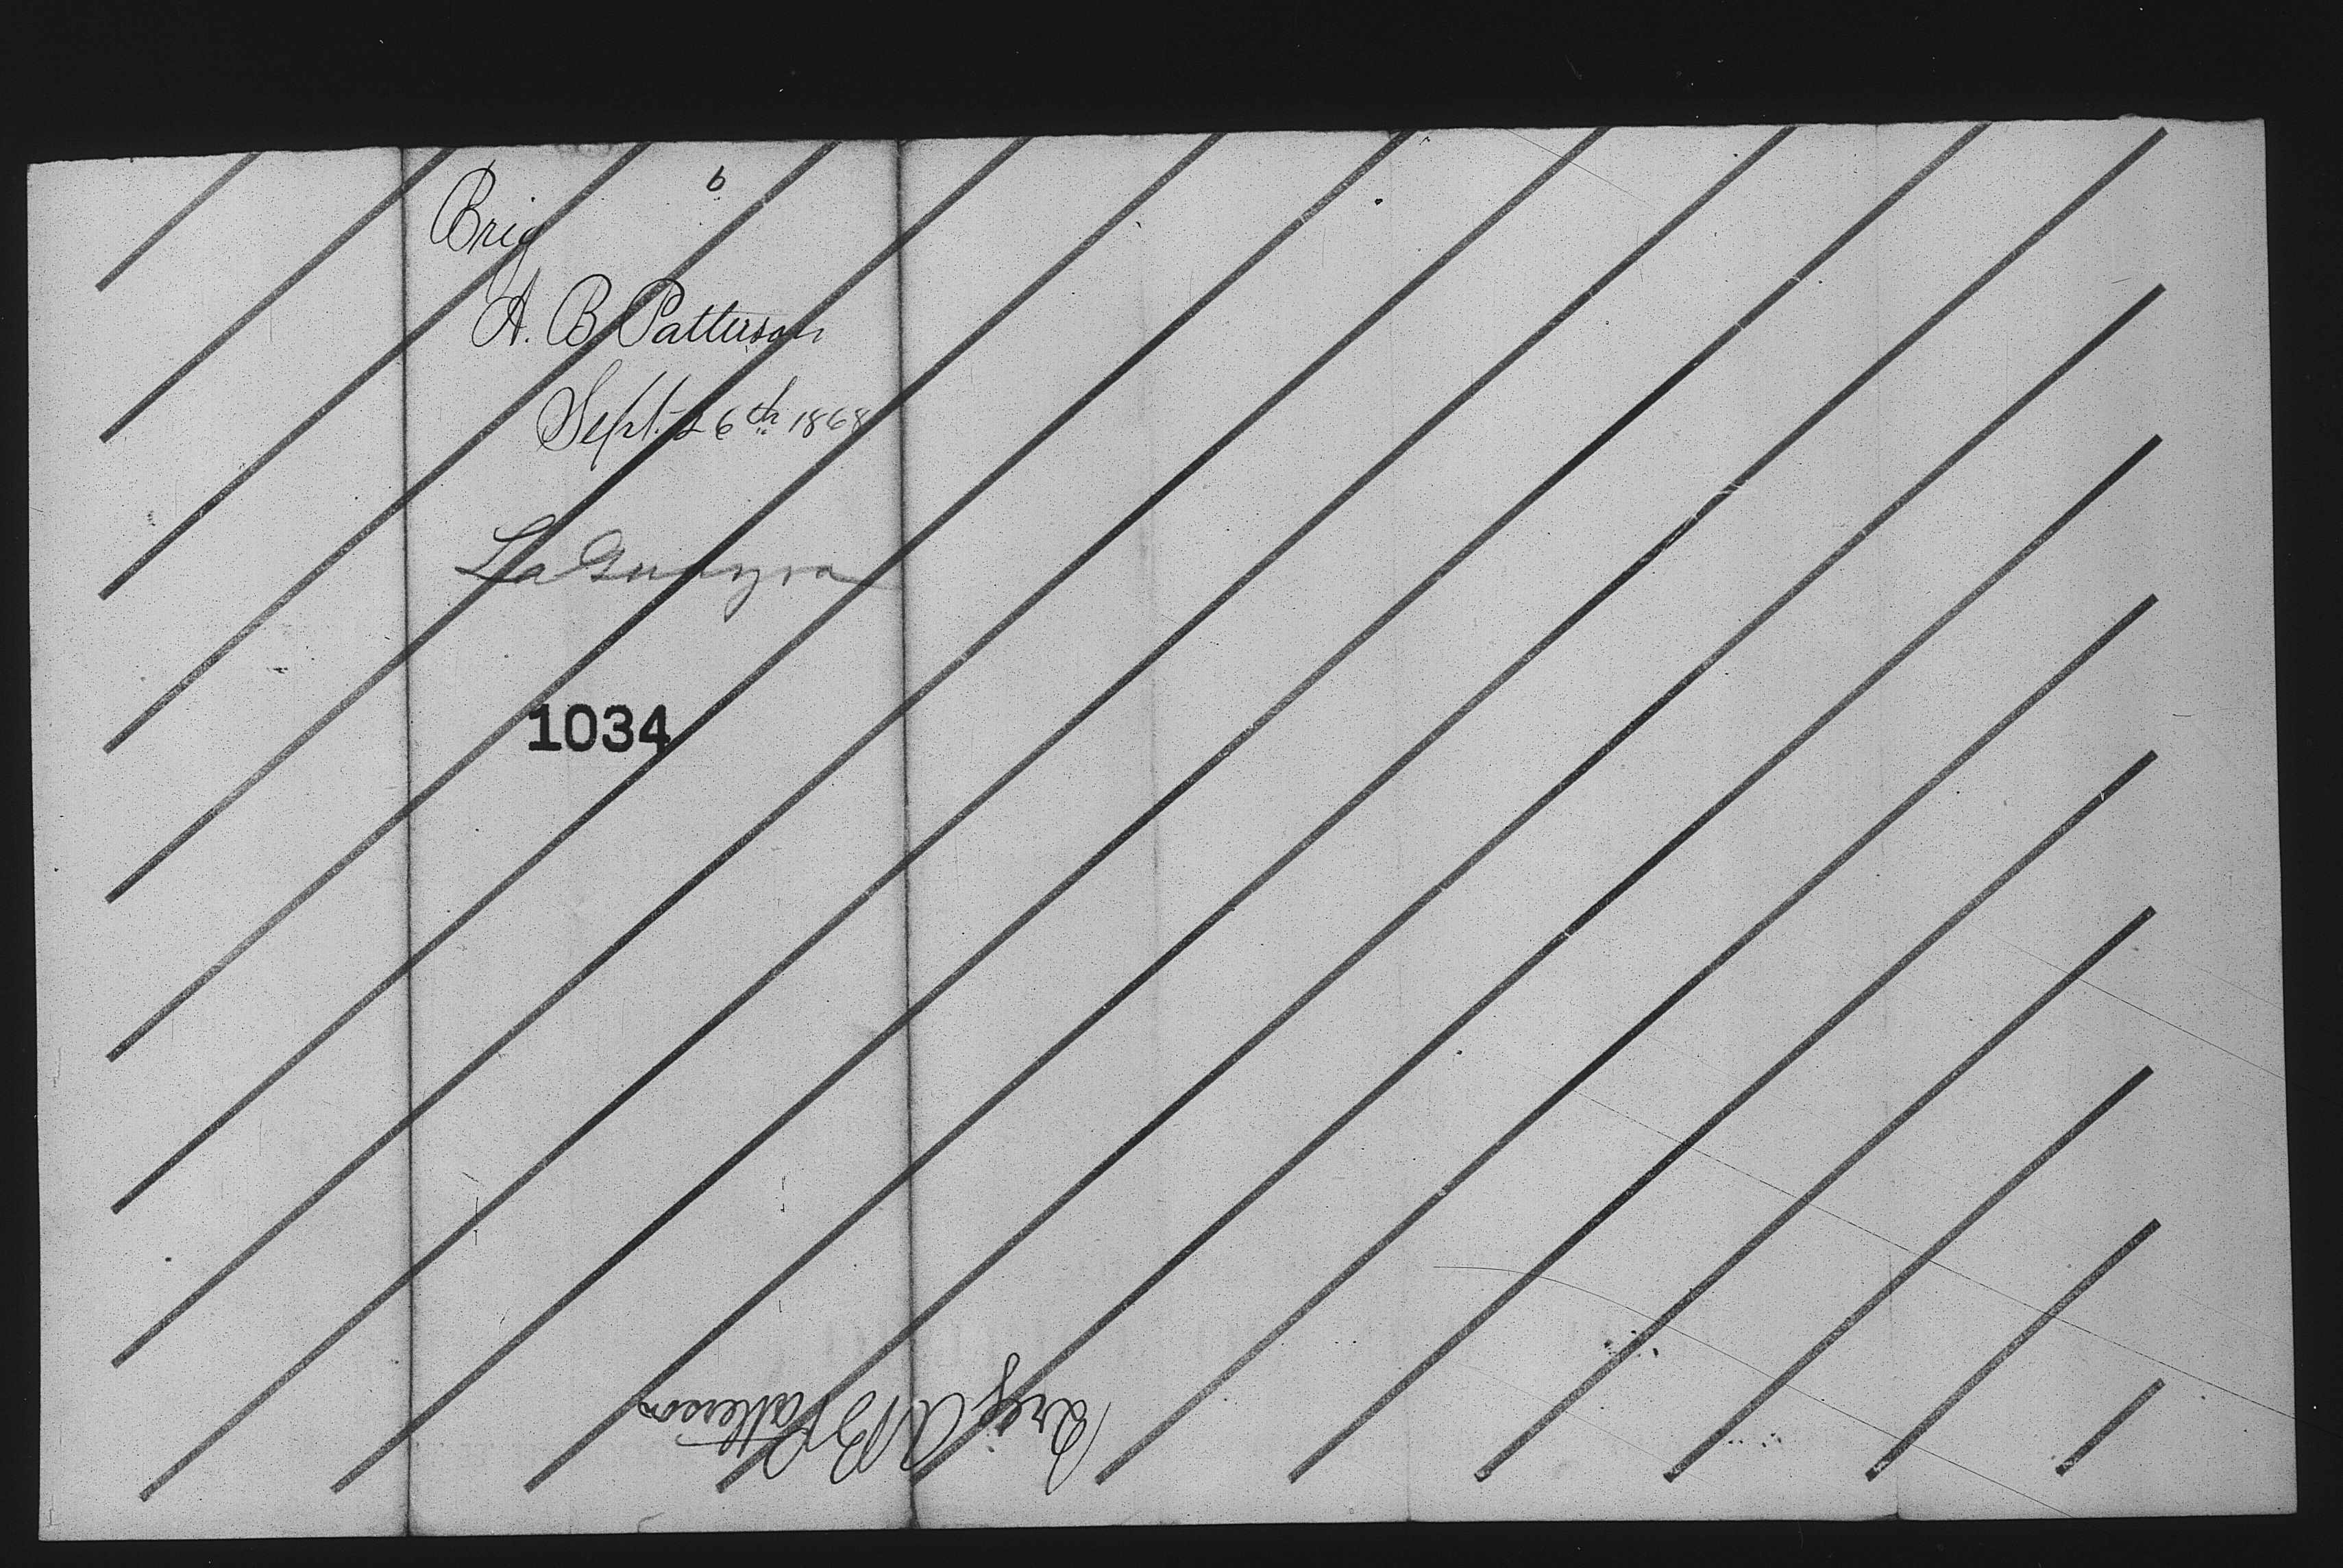 6
Brig
A. B Patterson
Sept. 26th 1868
La Guayra
1034
Brig A B Patterson